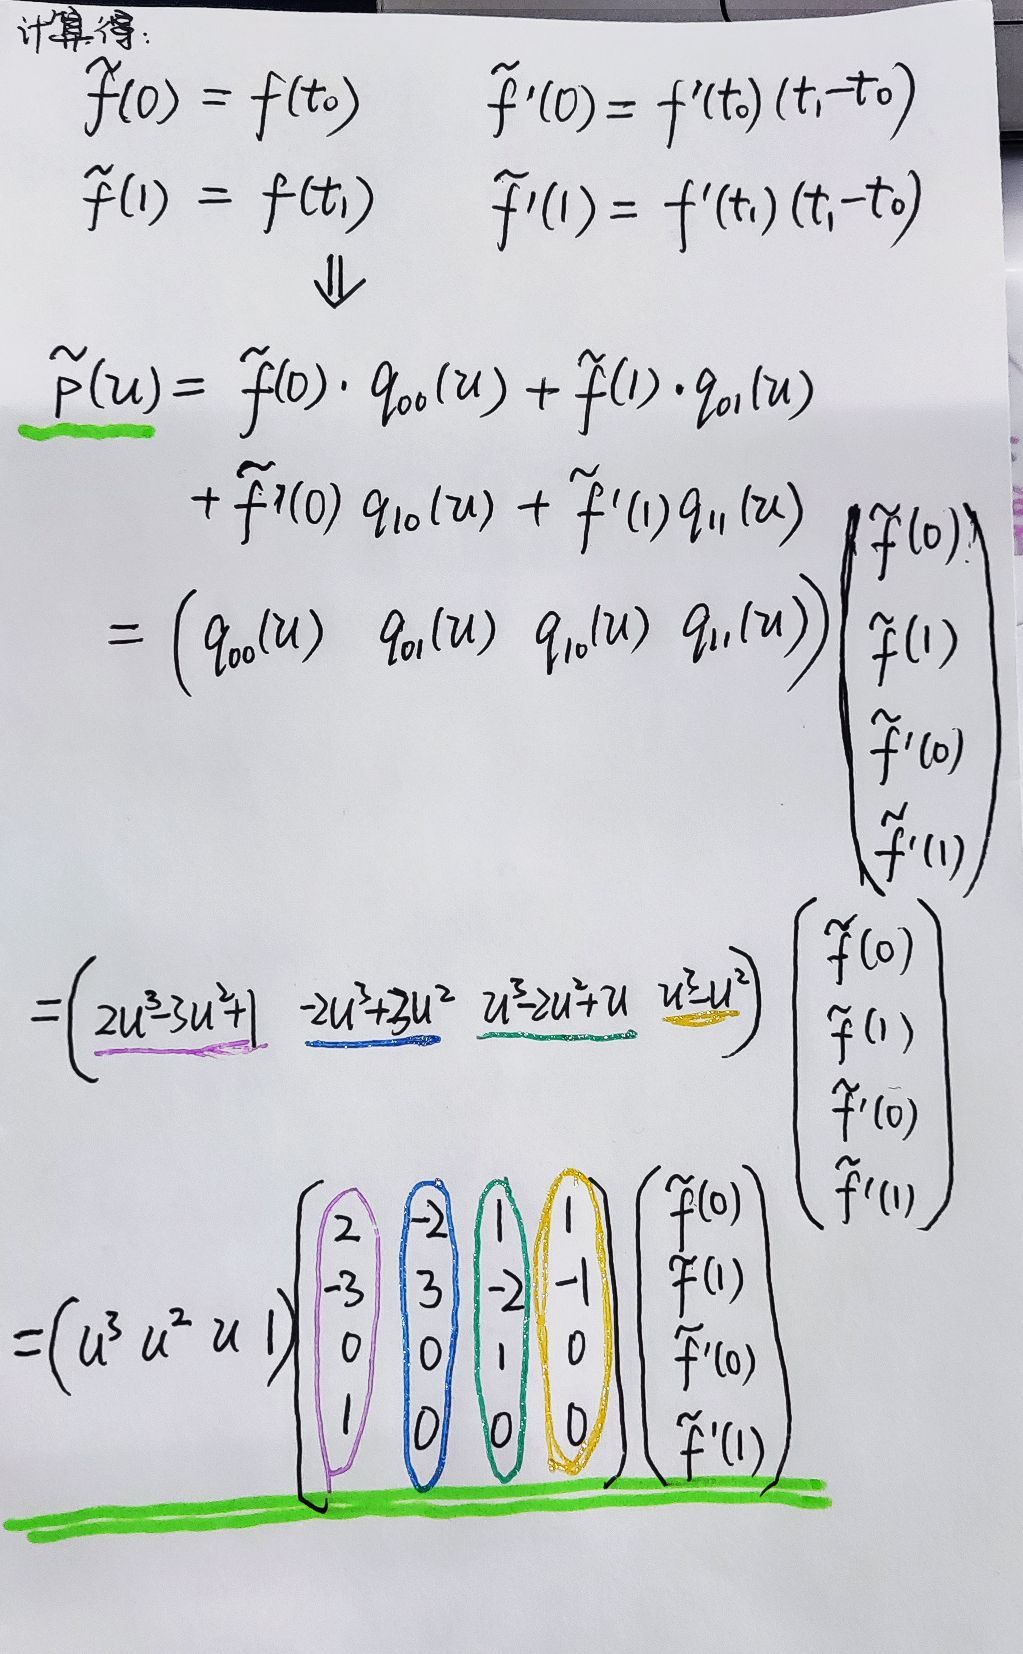 计算得:
f̃(0) = f(t₀) f̃'(0) = f'(t₀)(t₁-t₀)
f̃(1) = f(t₁) f̃'(1) = f'(t₁)(t₁-t₀)
⇓
p̃(u) = f̃(0)·q₀₀(u) + f̃(1)·q₀₁(u)
+ f̃'(0) q₁₀(u) + f̃'(1) q₁₁(u)
= (q₀₀(u) q₀₁(u) q₁₀(u) q₁₁(u))
f̃(0)
f̃(1)
f̃'(0)
f̃'(1)
= (2u³-3u²+1 -2u³+3u² u³-2u²+u u³-u²)
f̃(0)
f̃(1)
f̃'(0)
f̃'(1)
= (u³ u² u 1)
2 -2 1 1
-3 3 -2 -1
0 0 1 0
1 0 0 0
f̃(0)
f̃(1)
f̃'(0)
f̃'(1)